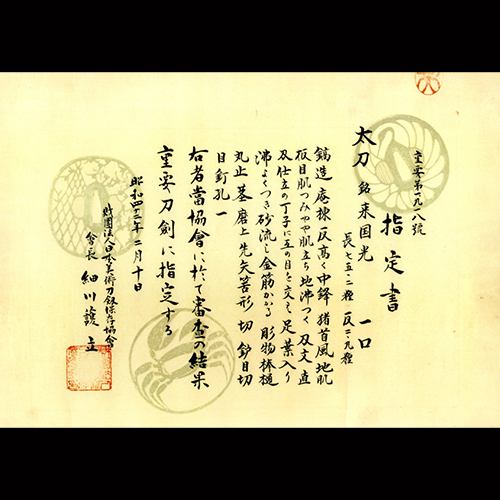 重要第一九一八號
指定書
太刀 銘 来国光 一口
長七五・二糎 反二・九糎
鎬造 庵棟 反高く中鋒 猪首風 地肌
板目肌つみやや肌立ち地沸つく 刃文 直
刃仕立の丁子に互の目を交え足葉入り
沸よくつき砂流し金筋かかる 彫物 棒樋
丸止 茎 磨上 先矢筈形 切 鑢目切
目釘孔一
右者當協會に於て審査の結果
重要刀劍に指定する
昭和四十二年二月十日
財團法人日本美術刀劍保存協會
會長 細川護立